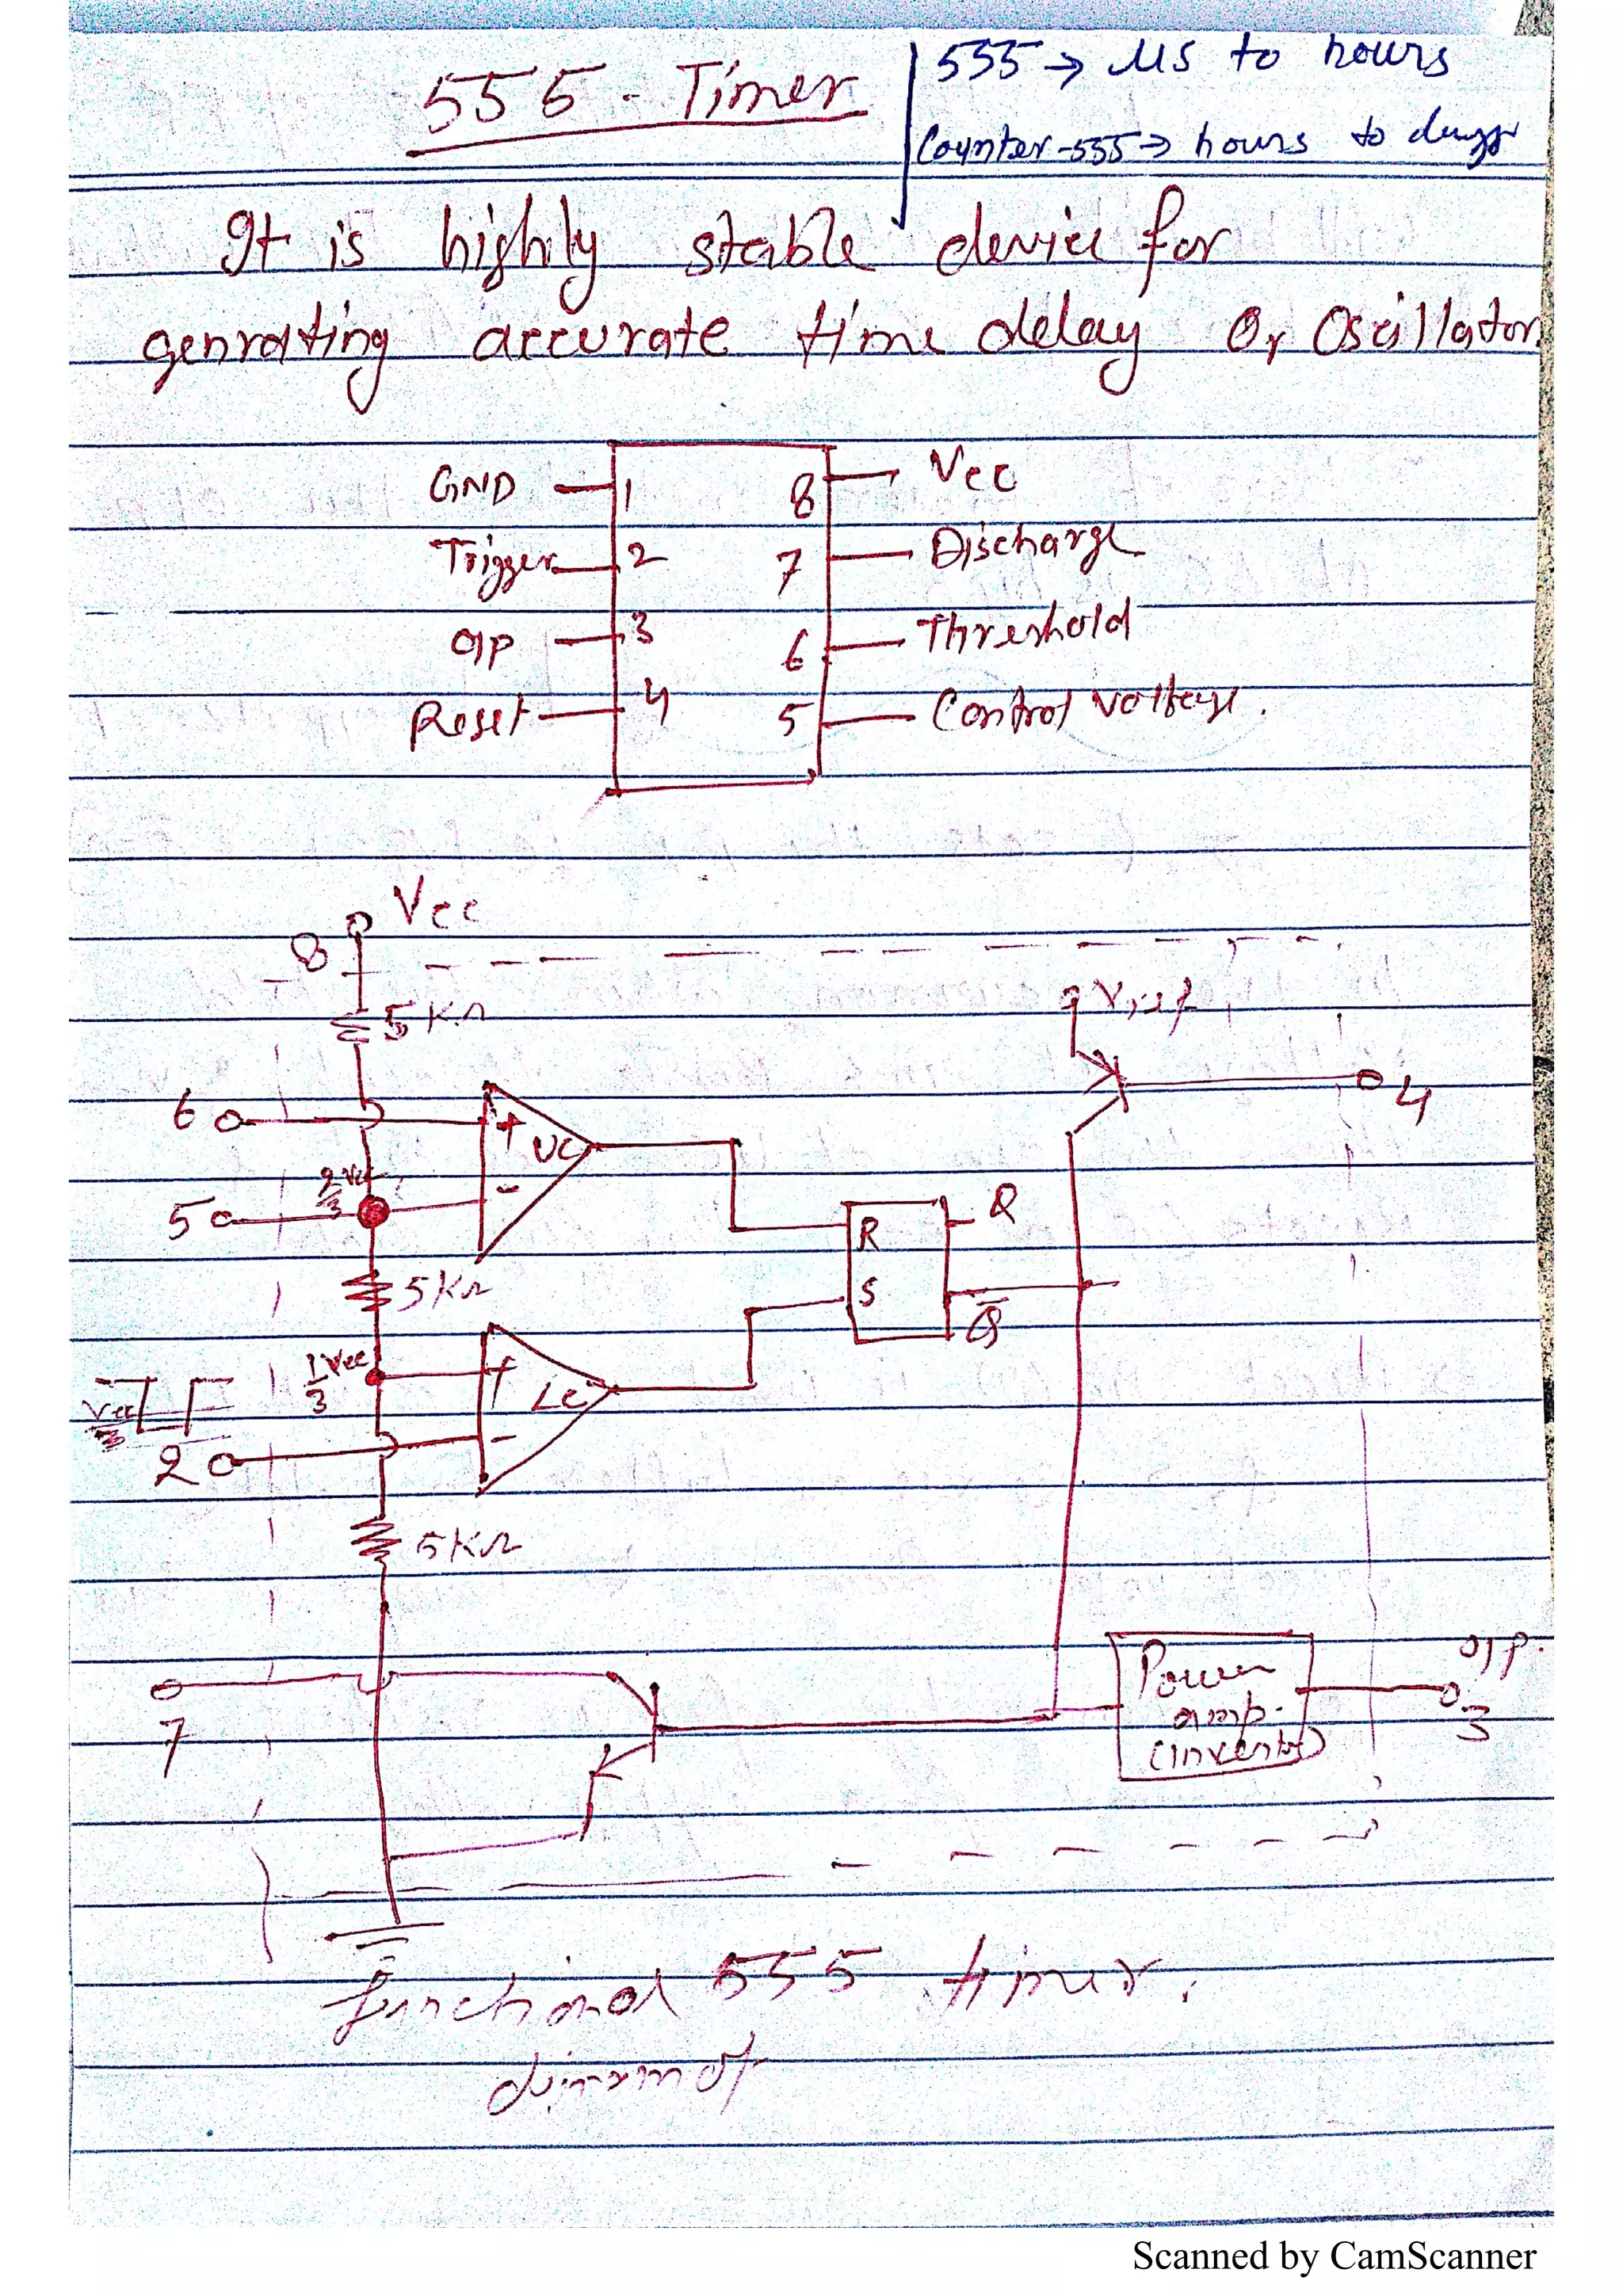 555 - Timer
555 → μs to hours
Counter-555 → hours to days
It is highly stable device for
genrating accurate time delay Or Oscillator.
GND 1 8 Vcc
Trigger 2 7 Discharge
O/P 3 6 Threshold
Reset 4 5 Control voltage.
Vcc
8
5KΩ
Vref
6 + UC 4
2/3 Vcc
5 - R Q
5KΩ S Q̅
1/3 Vcc + LC
Vcc/3
2 -
5KΩ
7
Power
amp.
(inverter)
O/P.
3
functional 555 timer.
Scanned by CamScanner